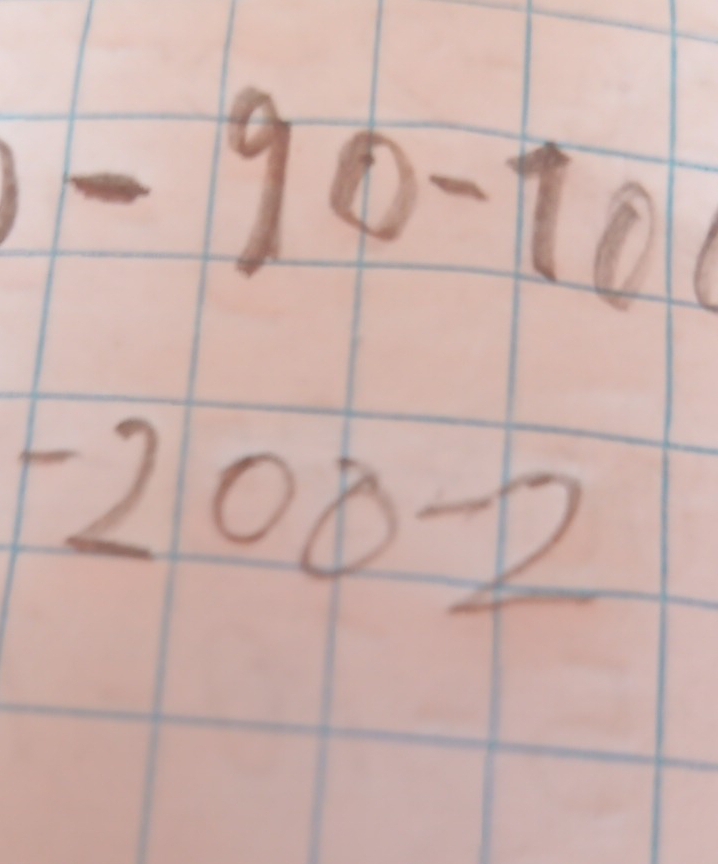 0 - 90 - 100
- 200 - 2